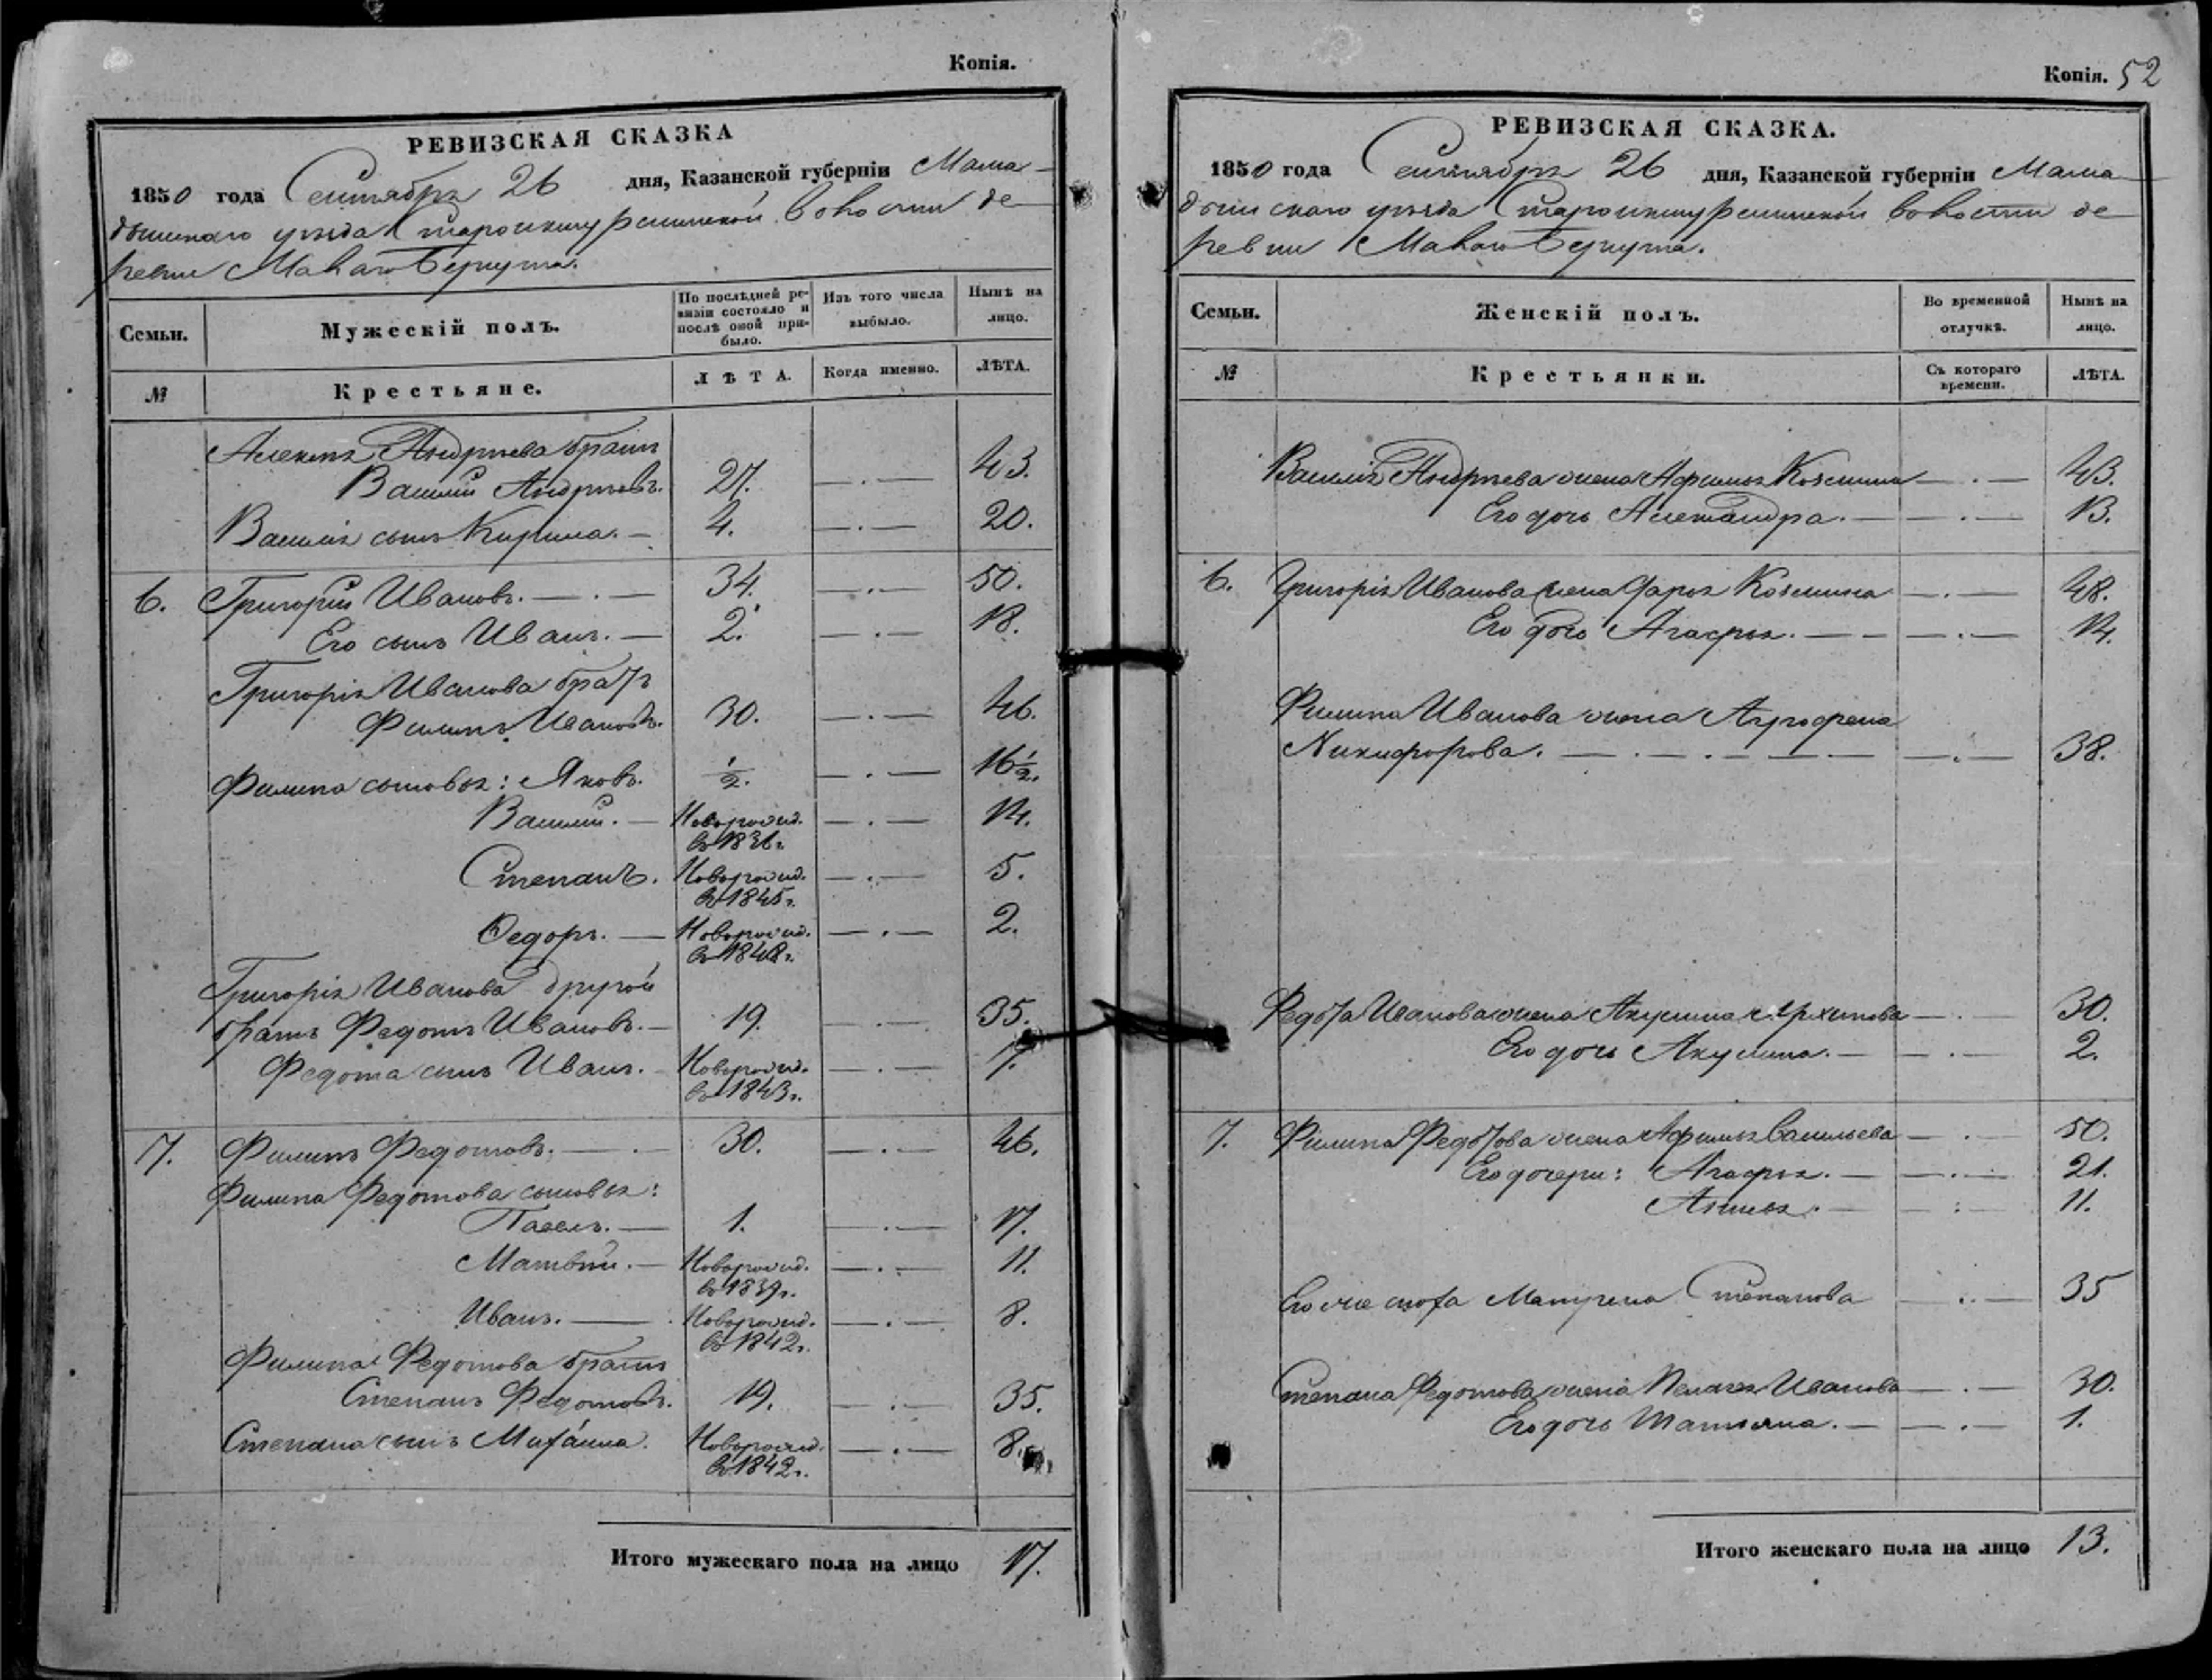 Копія.
РЕВИЗСКАЯ СКАЗКА
1850 года Сентября 26 дня, Казанской губерніи Мама-
дышскаго уѣзда Старо волости де-
ревни Малаго
Семьи.
Мужескій полъ.
По послѣдней ре-
визіи состояло и
послѣ оной при-
было.
Изъ того числа
выбыло.
Нынѣ на
лицо.
№
Крестьяне.
ЛѢТА.
Когда именно.
ЛѢТА.
Алексѣя Андреева братъ
Василій Андреевъ. 27. 43.
Василія сынъ Кирила. 4. 20.
6. Григорій Ивановъ. 34. 50.
Его сынъ Иванъ. 2. 18.
Григорія Иванова братъ
Филипъ Ивановъ. 30. 46.
Филипа сыновья: Яковъ. 1/2. 16 1/2.
Василій. Новорожд. 14.
въ 1836 г.
Степанъ. Новорожд. 5.
въ 1845 г.
Ѳедоръ. Новорожд. 2.
въ 1848 г.
Григорія Иванова другой
братъ Федотъ Ивановъ. 19. 35.
Федота сынъ Иванъ. Новорожд. 7.
въ 1843 г.
7. Филипъ Федотовъ. 30. 46.
Филипа Федотова сыновья:
Павелъ. 1. 17.
Матвѣй. Новорожд. 11.
въ 1839 г.
Иванъ. Новорожд. 8.
въ 1842 г.
Филипа Федотова братъ
Степанъ Федотовъ. 19. 35.
Степана сынъ Михайла. Новорожд. 8.
въ 1842 г.
Итого мужескаго пола на лицо 17.
Копія. 52
РЕВИЗСКАЯ СКАЗКА.
1850 года Сентября 26 дня, Казанской губерніи Мама-
дышскаго уѣзда Старо волости де-
ревни Малаго
Семьи.
Женскій полъ.
Во временной
отлучкѣ.
Нынѣ на
лицо.
№
Крестьянки.
Съ котораго
времени.
ЛѢТА.
Василія Андреева жена Афимья Козмина 43.
Его дочь Александра. 13.
6. Григорія Иванова жена Козмина 48.
Его дочь Агафья. 14.
Филипа Иванова жена Аграфена
Никифорова. 38.
Федота Иванова жена Акулина Архипова 30.
Его дочь Акулина. 2.
7. Филипа Федотова жена Афимья Васильева 50.
Его дочери: Агафья. 21.
Анисья. 11.
Его же сноха Матрена Степанова 35
Степана Федотова жена Пелагея Иванова 30.
Его дочь Татьяна. 1.
Итого женскаго пола на лицо 13.